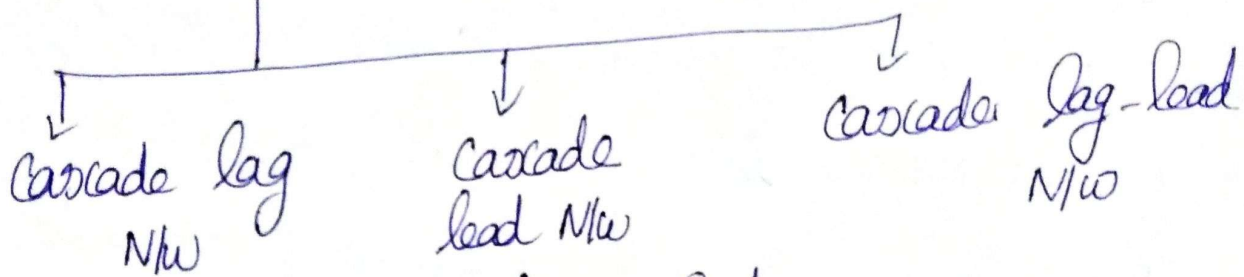 Cascade lag
N/W
Cascade
lead N/W
Cascade lag-lead
N/W